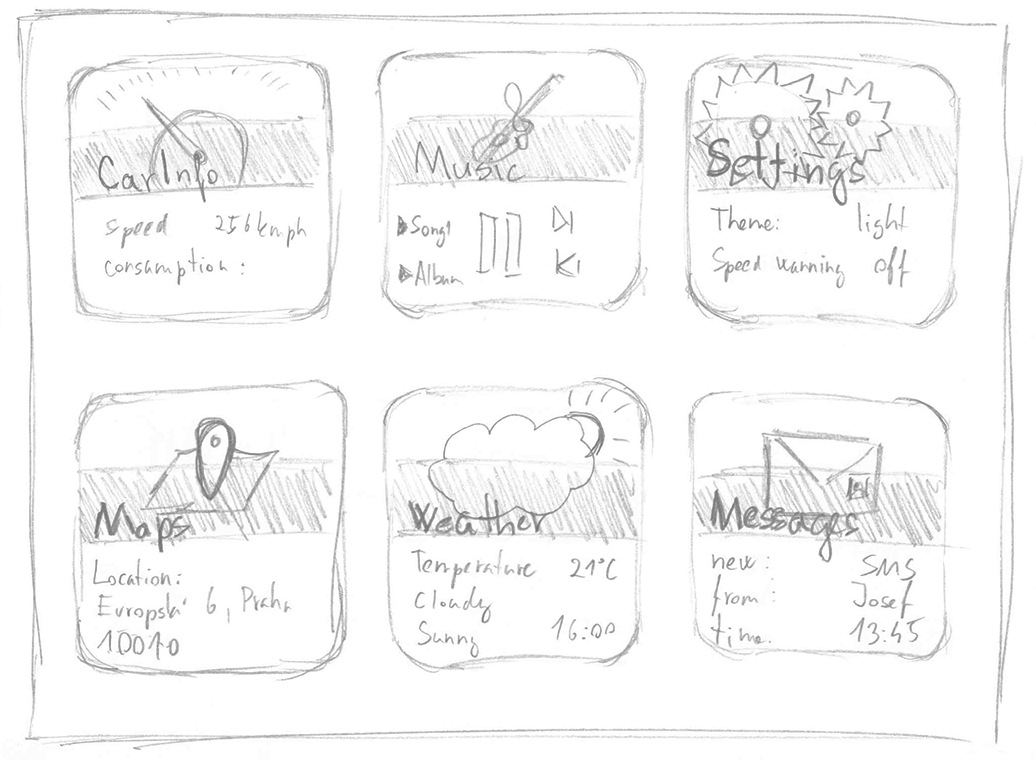 CarInfo
speed 256kmph
consumption :
Music
Song1
Album
Settings
Theme: light
Speed warning off
Maps
Location:
Evropská 6, Praha
Weather
Temperature 21°C
Cloudy
Sunny 16:00
Messages
new: SMS
from: Josef
time: 13:45